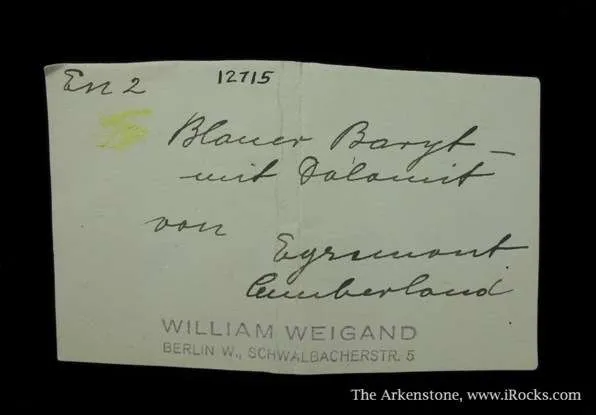 En 2 12715
Blauer Baryt —
mit Dolomit
von
Egremont
Cumberland
WILLIAM WEIGAND
BERLIN W., SCHWALBACHERSTR. 5
The Arkenstone, www.iRocks.com